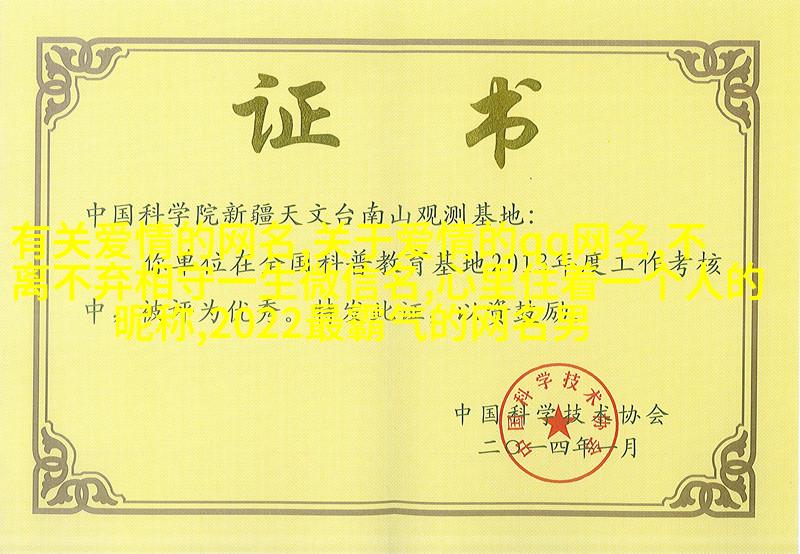 证 书
中国科学院新疆天文台南山观测基地:
有关爱情的网名,关于爱情的qq网名,不
你单位在全国科普教育基地2013年度工作考核
离不弃相守一生微信名,心里住着一个人的
中，被评为优秀。特发此证，以资鼓励。
昵称,2022最霸气的网名男
中国科学技术协会
二〇一四年一月
中国科学技术协会